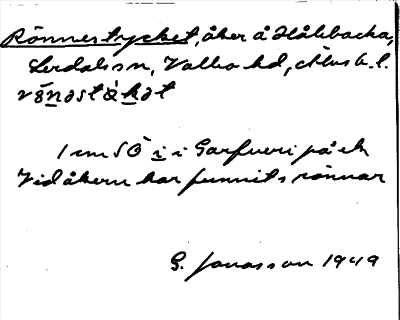 Rönnestycket, åker å Hålebacka,
Lerdals sn, Valbo hd, Älvsb. l.
rö̀nəstỳkət
1 cm SO i i Garfveri på ek
Vid åkern har funnits rönnar
G. Jonasson 1949